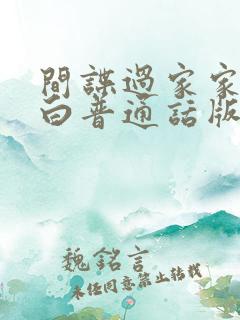 間諜過家家
白普通話版
魏銘言
未经同意禁止转载